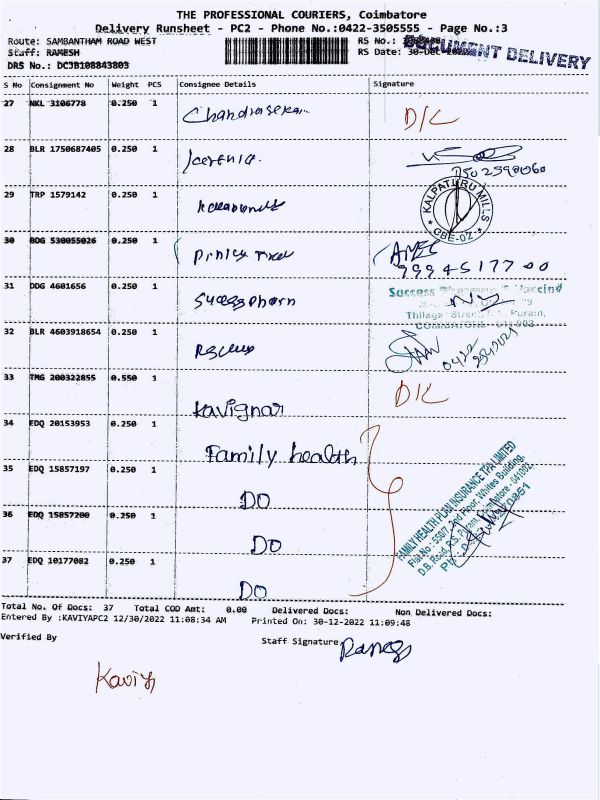 THE PROFESSIONAL COURIERS, Coimbatore
Delivery Runsheet - PC2 - Phone No.:0422-3505555 - Page No.:3
Route: SAMBANTHAM ROAD WEST
RS No.:
Staff: RAMESH
RS Date: 30-Dec-2022
DOCUMENT DELIVERY
DRS No.: DCJB108843803
S No Consignment No Weight PCS Consignee Details Signature
27 NKL 3106778 0.250 1 Chandrasekar D/L
28 BLR 1750687405 0.250 1
29 TRP 1579142 0.250 1
KALPATURU MILLS
CBE-02
30 BDG 530055026 0.250 1
99945177 00
31 DDG 4601656 0.250 1
Success
Thilagar Street, Puram,
COIMBATORE
32 BLR 4603918654 0.250 1
0422
33 TMG 200322855 0.550 1 Kavignar D/L
34 EDQ 20153953 0.250 1 Family health
35 EDQ 15857197 0.250 1 DO
36 EDQ 15857200 0.250 1 DO
37 EDQ 10177082 0.250 1 DO
FAMILY HEALTH PLAN INSURANCE TPA LIMITED
2nd Floor, Whites Building,
D.B. Road, R.S. Puram, Coimbatore - 641002.
Total No. Of Docs: 37 Total COD Amt: 0.00 Delivered Docs: Non Delivered Docs:
Entered By :KAVIYAPC2 12/30/2022 11:08:34 AM Printed On: 30-12-2022 11:09:48
Verified By
Staff Signature